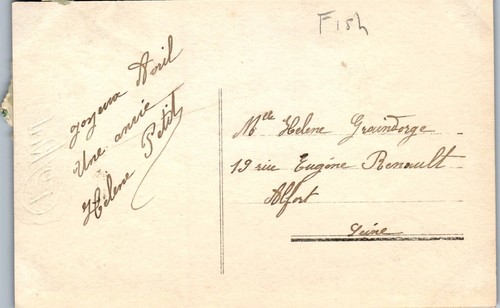 Fish
Joyeux Avril
Une amie
Hélène Petit
Mlle Helene Graindorge
19 rue Eugène Renault
Alfort
Seine